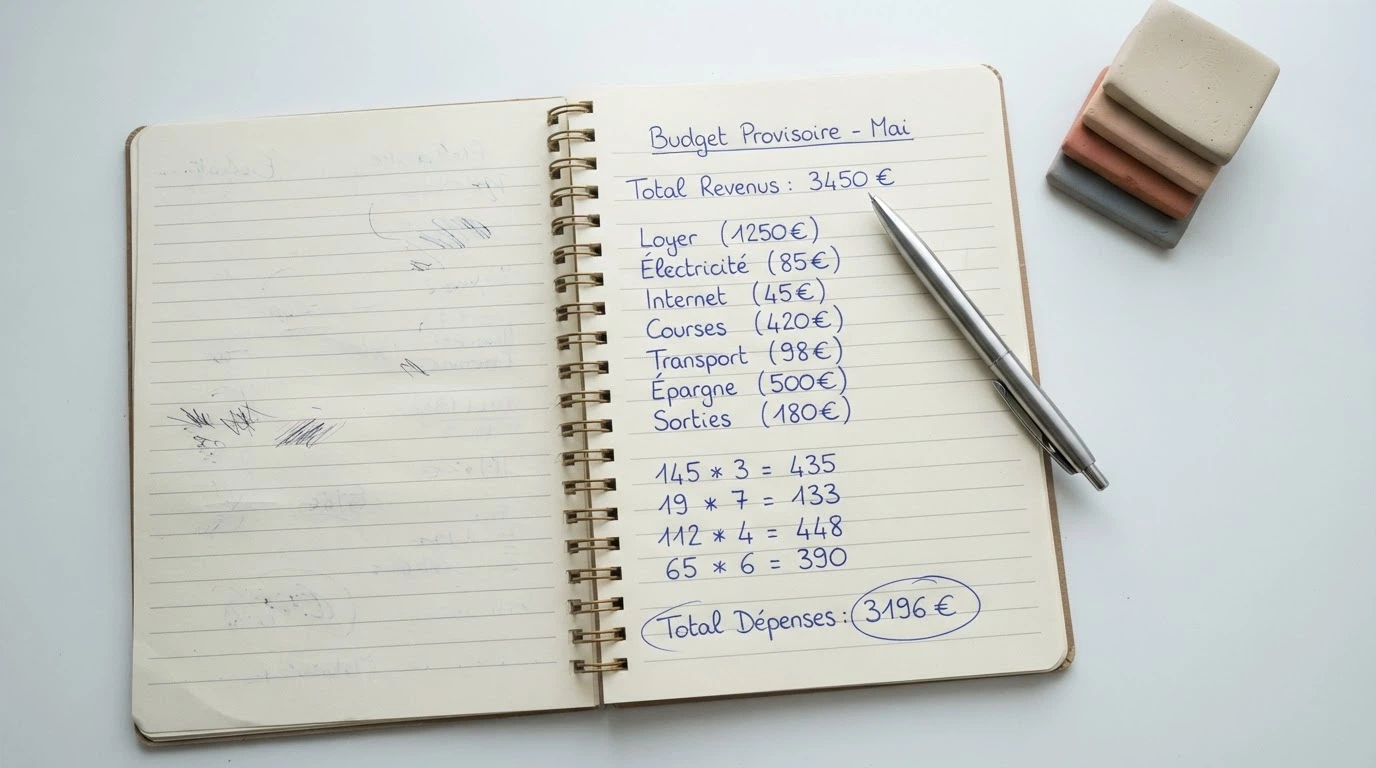 Budget Provisoire - Mai
Total Revenus : 3450 €
Loyer (1250€)
Électricité (85€)
Internet (45€)
Courses (420€)
Transport (98€)
Épargne (500€)
Sorties (180€)
145 * 3 = 435
19 * 7 = 133
112 * 4 = 448
65 * 6 = 390
Total Dépenses : 3196 €